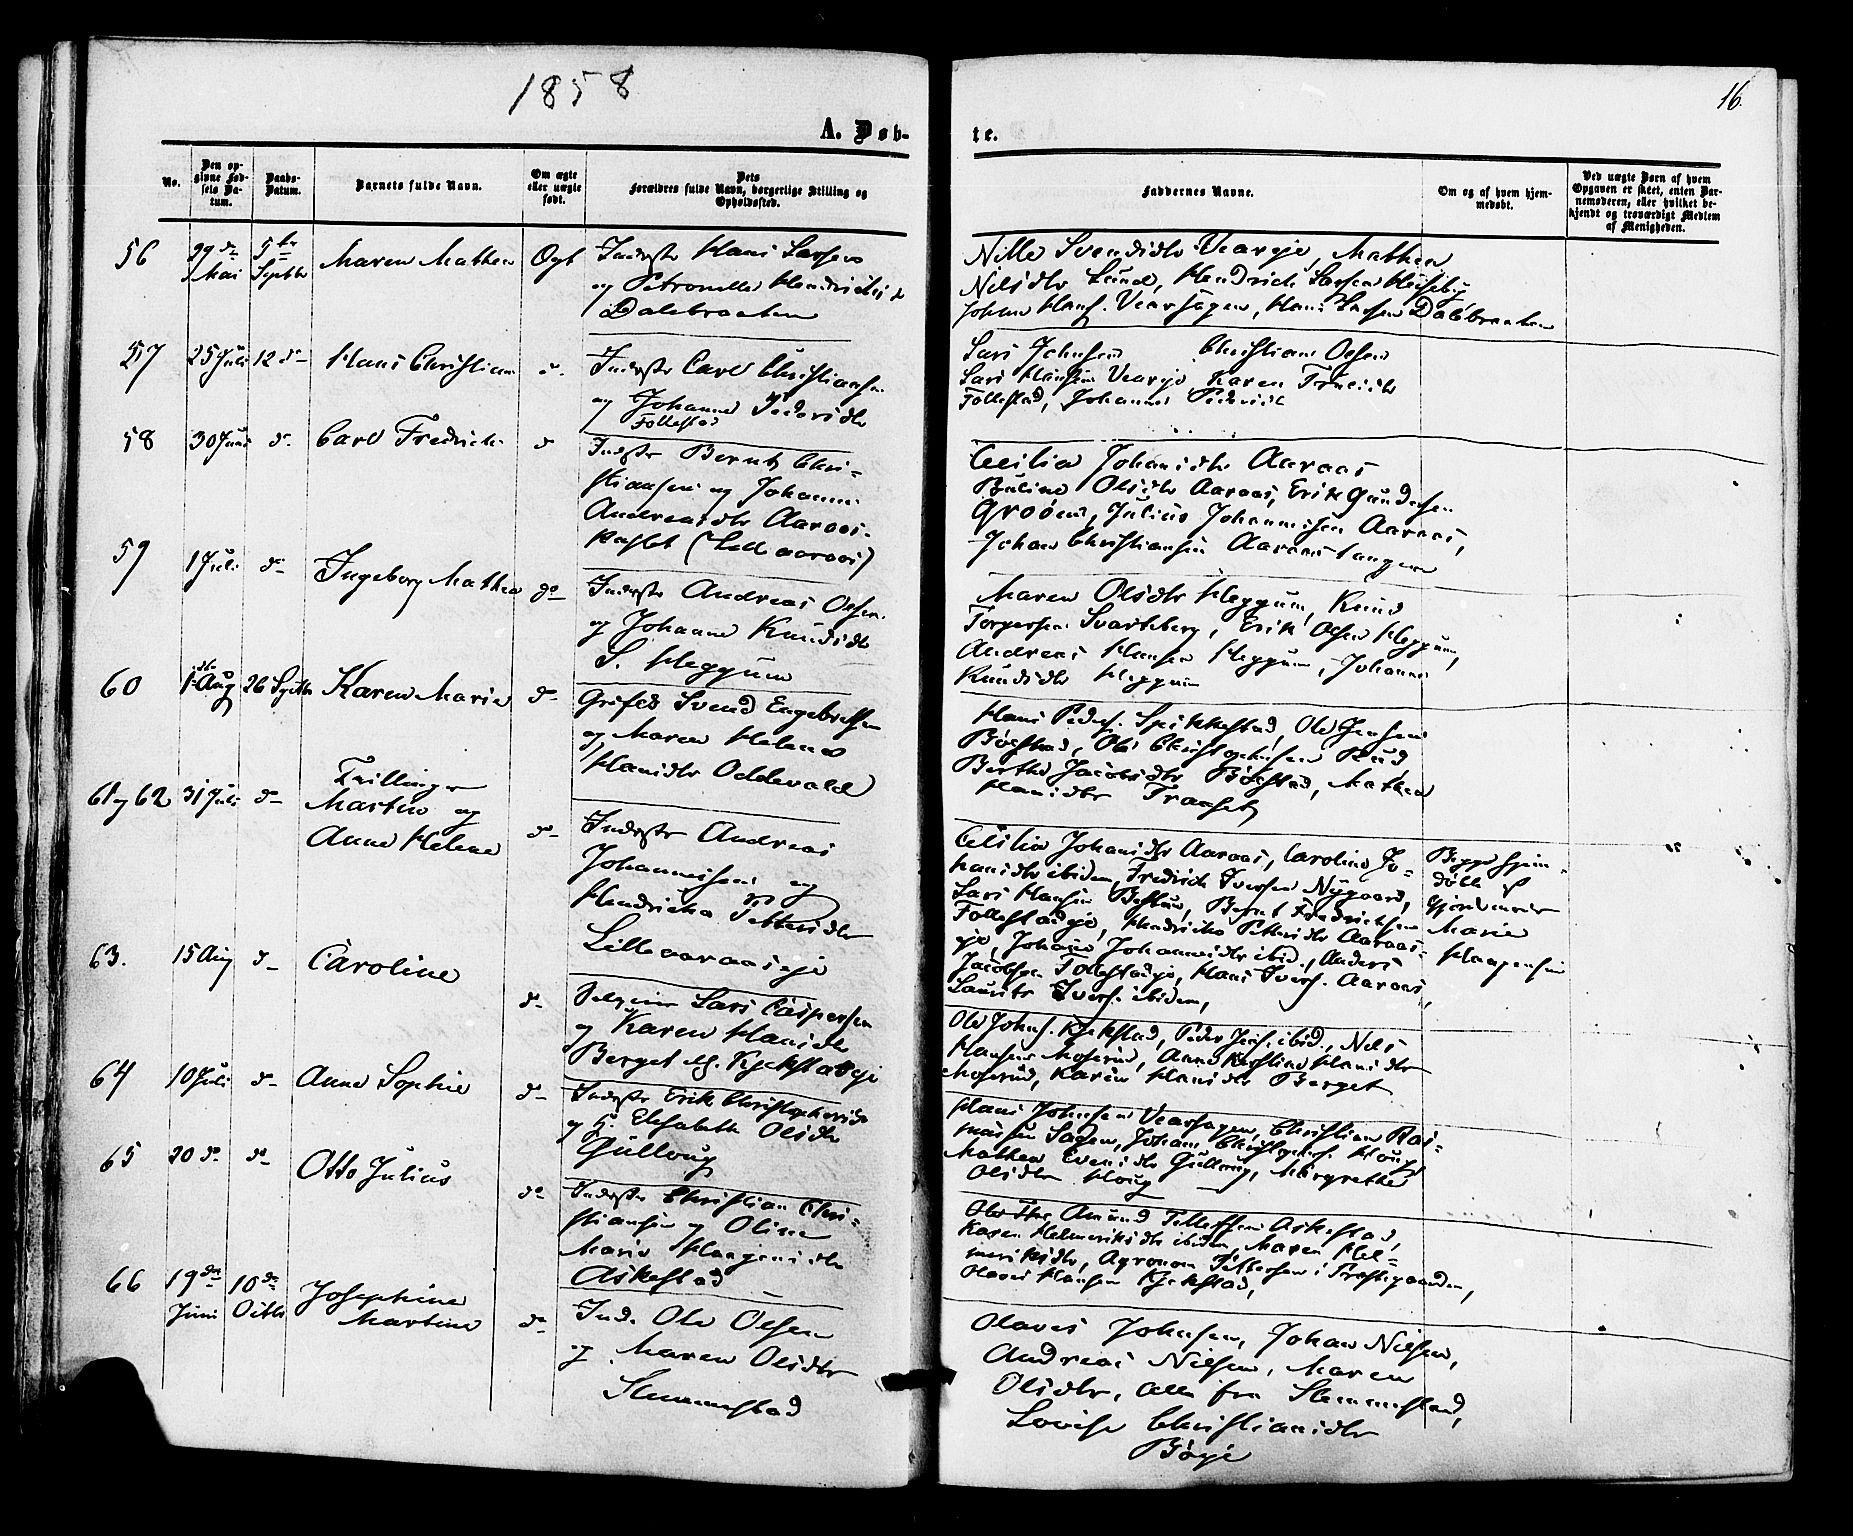 1858
16.
A. Døb-
te.
No.
Den op-
givne Fød-
sels Da-
tum.
Daabs-
Datum.
Barnets fulde Navn.
Om ægte
eller uægte
født.
Dets
Forældres fulde Navn, borgerlige Stilling og
Opholdssted.
Faddernes Navne.
Om og af hvem hjem-
medøbt.
Ved uægte Børn af hvem
Opgaven er skeet, enten Bar-
nemoderen, eller hvilket be-
kjendt og troværdigt Medlem
af Menigheden.
56
29 de
Mai
5te
Septbr
Maren Mathea
Ægt
Inderste Hans Larsen
og Petronelle Hendrichsd
Dalebraaten
Nille Svendsdtr Vearøje, Mathea
Nilsdtr Lund, Hendrich Larsen Huseby
Johan Hans. Vearhagen, Hans Larsen Dalebraaten
57
25 Juli
12 d
Hans Christian
d.
Inderste Carl Christiansen
og Johanne Pedersdtr
Follestad
Lars Johnsen Christian Olsen
Lars Hansen Vearøje Karen
Follestad, Johannes
58
30 Juni
d.
Carl Fredrich
d
Indste Bernt Chri-
stiansen og Johanne
Andreasdtr Aaraas-
(Lilleaaraas)
Cecilia Johansdtr Aaraas
Buline Olsdtr Aaraas, Erik Gundersen
Julius Johannesen Aaraas,
Johan Christiansen Aaraastangen
59
1 Juli
do
Ingeborg Mathea
do
Inderste Andreas Olsen
og Johanne Knudsdtr
S. Heggum
Maren Olsdtr Heggum, Knud
Torgersen Svartsberg, Erik Olsen Heggum,
Andreas Hansen Heggum, Johanne
Knudsdtr Heggum
60
1ste Aug
26 Septbr
Karen Marie
d
Svend Engebretsen
og Maren Helene
Hansdtr Oddevald
Hans Peders. Spikkestad, Ole Jensen
Bølstad, Ole Christophersen Rud
Berthe Jacobsdtr Bølstad, Mathea
Hansdtr Traaset
61 og 62
31 Juli
d
Tvillinger
Martin og
Anne Helene
d
Inderste Andreas
Johannesen og
Hendrika Pettersdtr
Lilleaaraaseje
Cecilia Johansdtr Aaraas, Caroline Jo-
hansdtr ibidem, Fredrich Iversen Nygaard,
Lars Hansen Bestun, Bernt Fredrichsen
Follestadeje, Hendrika Pettersdtr Aaraas-
eje, Johanne Johannesdtr ibid., Anders
Jacobsen Follestadeje, Hans Ivers. Aaraas,
Laurits Ivers. ibidem,
Begge hjem-
døbte af
Gjordemoder
Marie
Haagensen
63.
15 Aug
d
Caroline
d
Lars Caspersen
og Karen Hansdtr
Berget Kjekstadeje
Ole Johns. Kjekstad, Peder Jens. ibid., Nils
Hansen Moserud, Anne Kirstine Hansdtr
Moserud, Karen Hansdtr Berget
64
10 Juli
d
Anne Sophie
d
Inderste Erik Christophersen
og H. Elisabeth Olsdtr
Gullaug
Hans Johnsen Vearhagen, Christian Ras-
mussen Sagen, Johan Christophers. Houg,
Mathea Evensdtr Gullaug, Margrethe
Olsdtr Houg
65
20 do
do
Otto Julius
do
Inderste Christian Chri-
stiansen og Oline
Marie Haagensdtr
Askestad
Amund Tellefsen Askestad,
Karen Helmeriksdtr ibidem, Maren Hel-
meriksdtr, Agronom Pettersen i Præstegaarden,
Olaves Hansen Kjekstad,
66
19 de
Juni
10 de
Octbr
Josephine
Martine
do
Ind. Ole Olsen
og Maren Olsdtr
Slemmestad
Olaves Johnsen, Johan Nilsen,
Andreas Nilsen, Maren
Olsdtr, alle fra Slemmestad,
Lovise Christiansdtr
Bøeje